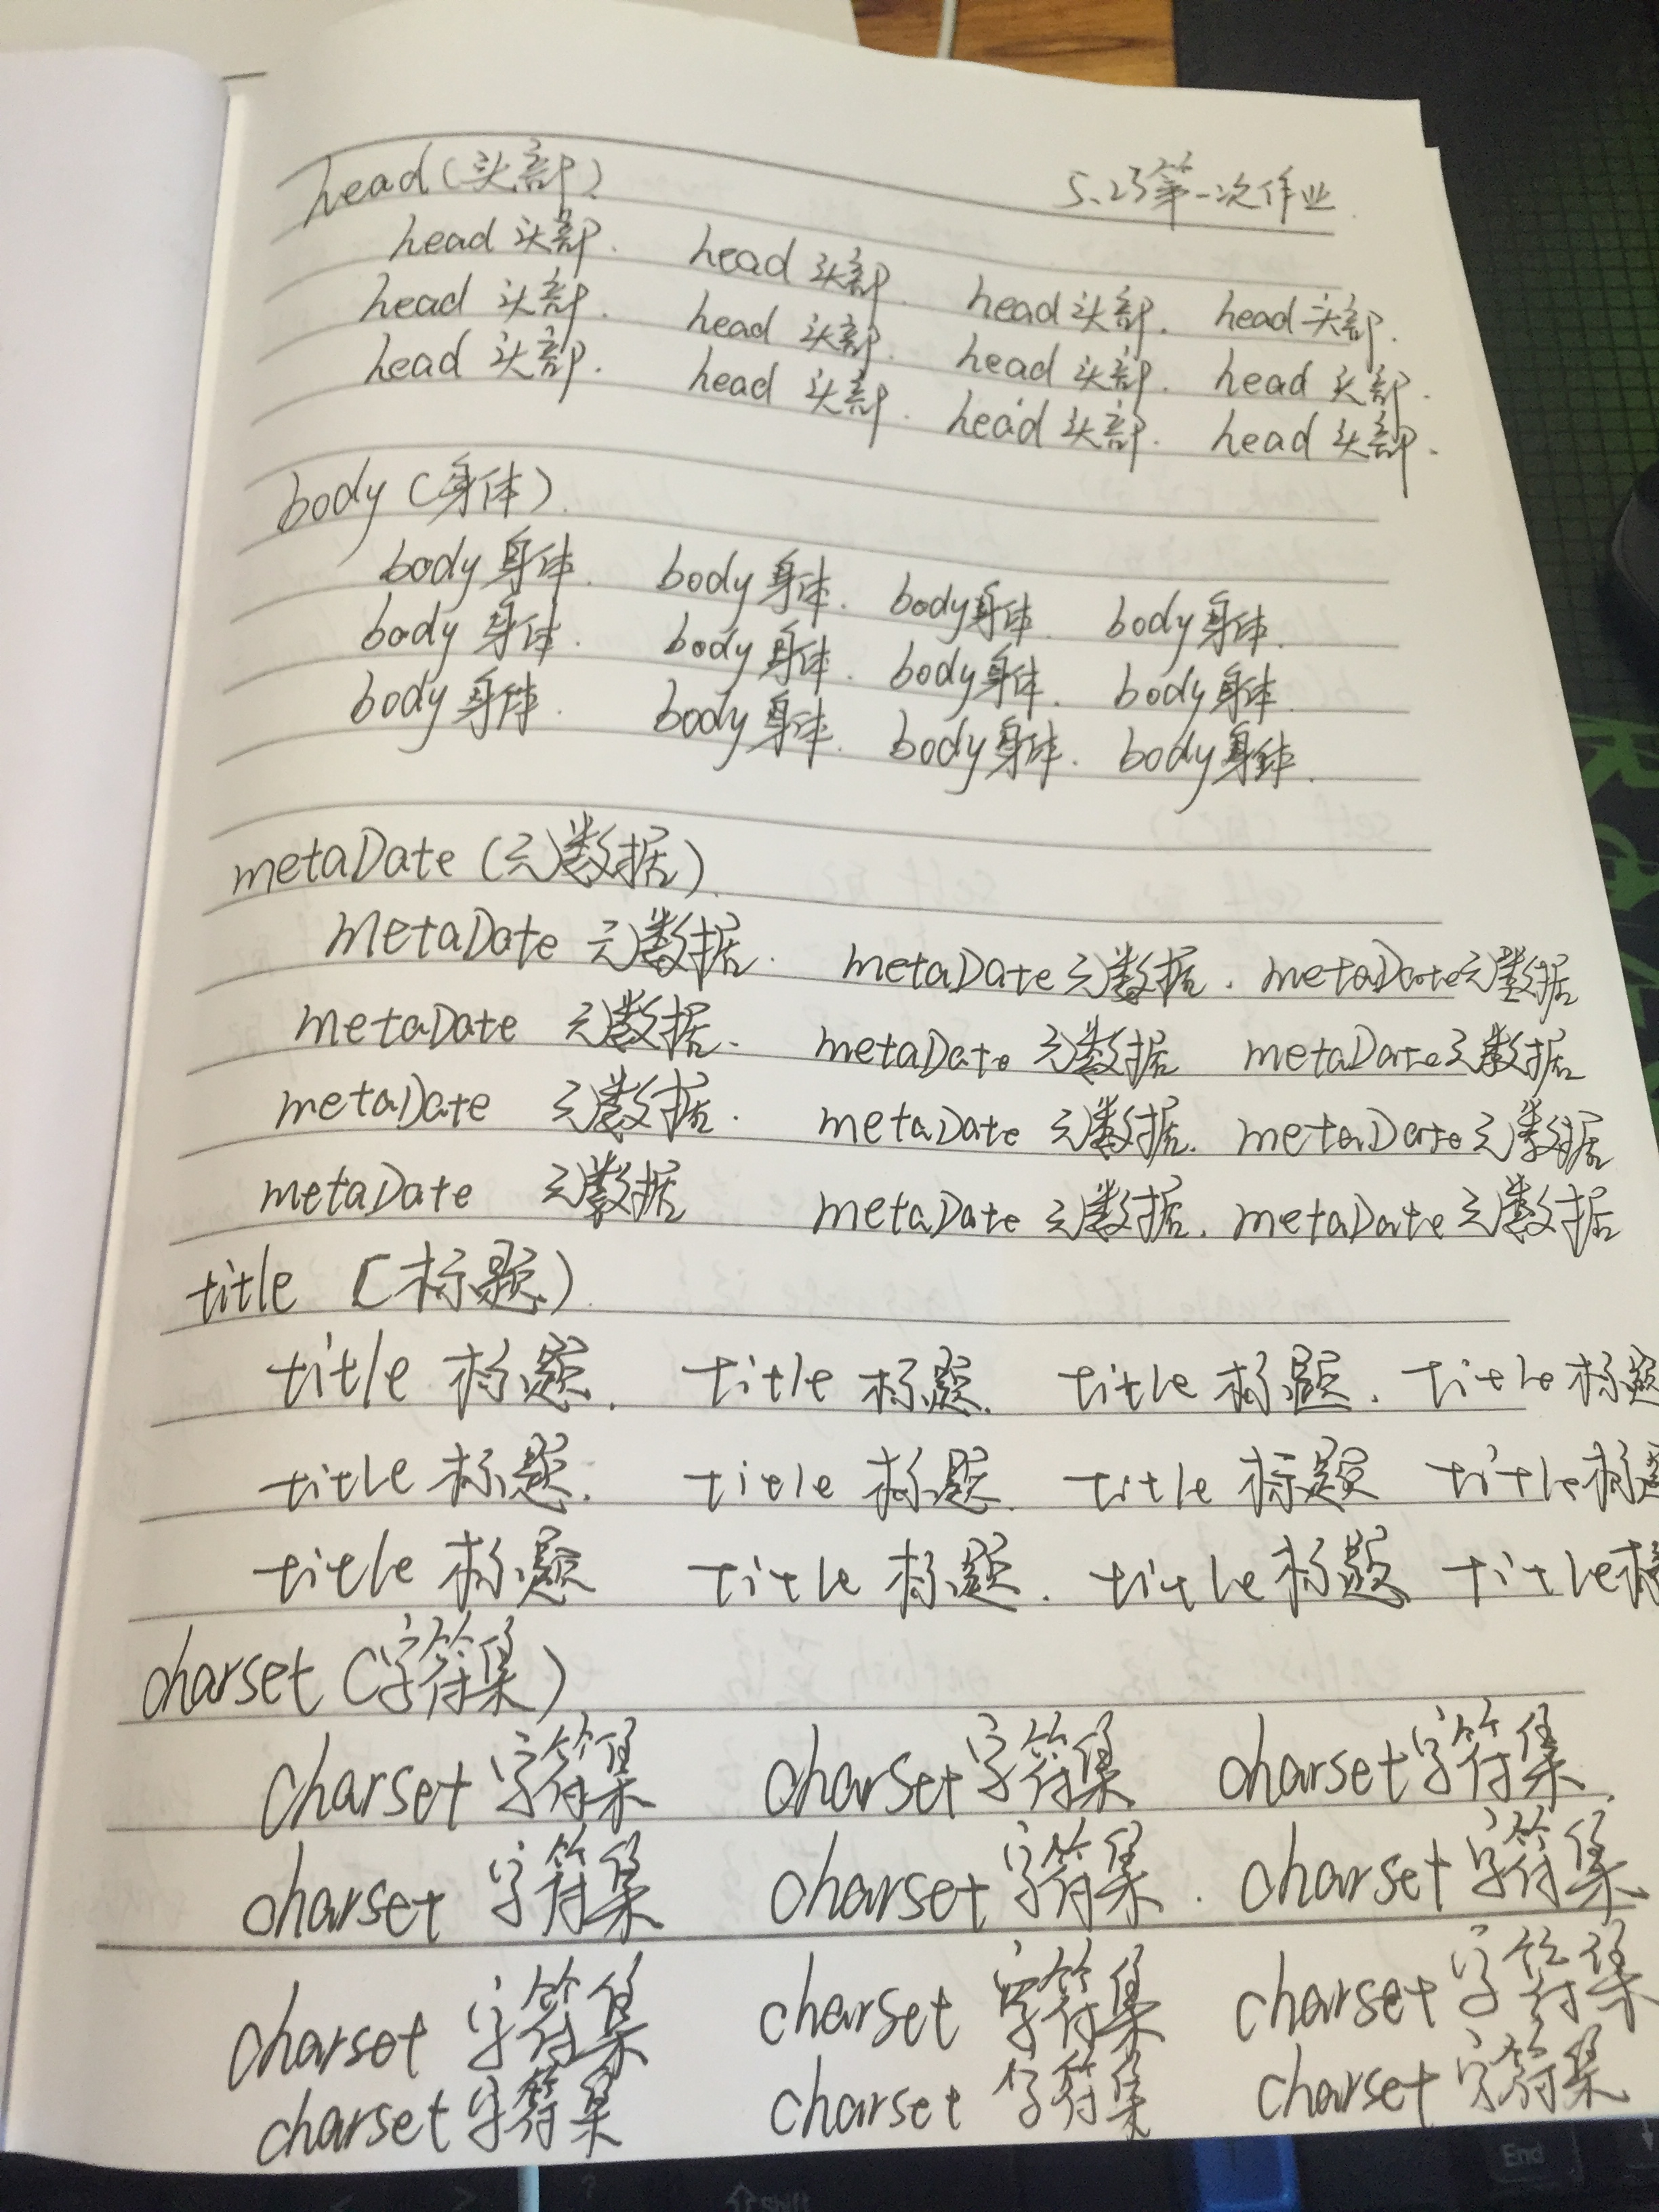 head(头部)
5.23第一次作业
head 头部. head 头部. head 头部. head 头部.
head 头部. head 头部. head 头部. head 头部.
head 头部. head 头部. head 头部. head 头部.
body (身体).
body 身体. body 身体. body 身体. body 身体.
body 身体. body 身体. body 身体. body 身体.
body 身体. body 身体. body 身体. body 身体.
metaDate (元数据).
MetaDate 元数据. metaDate 元数据. metaDate 元数据
metaDate 元数据. metaDate 元数据 metaDate 元数据
metaDate 元数据. metaDate 元数据. metaDate 元数据
metaDate 元数据 metaDate 元数据. metaDate 元数据
title (标题).
title 标题. title 标题. title 标题. title 标题
title 标题. title 标题. title 标题 title 标题
title 标题 title 标题. title 标题 title 标
charset (字符集)
charset 字符集 charset 字符集 charset 字符集.
charset 字符集 charset 字符集. charset 字符集
charset 字符集 charset 字符集 charset 字符集
charset 字符集 charset 字符集 charset 字符集
Shift
End